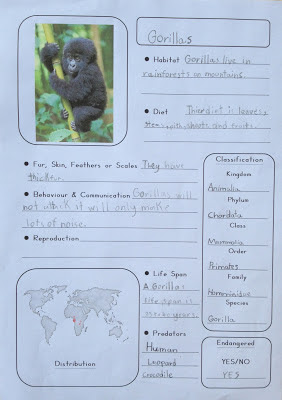 Gorillas
• Habitat Gorillas live in
rainforests on mountains.
• Diet Thier diet is leaves,
stems, pith, shoots and fruits.
• Fur, Skin, Feathers or Scales They have
thick fur.
• Behaviour & Communication Gorillas will
not attack it will only make
lots of noise.
• Reproduction
Classification
Kingdom
Animalia
Phylum
Chordata
Class
Mammalia
Order
Primates
Family
Hominidae
Species
Gorilla
• Life Span
A Gorillas
life span is
years.
• Predators
Human
Leopard
Crocodile
Distribution
Endangered
YES/NO
YES